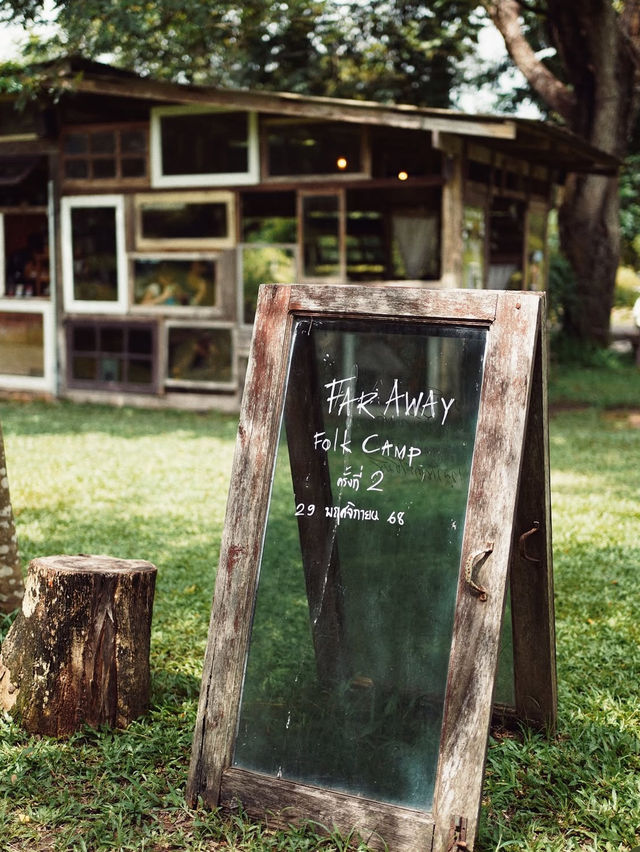 FAR AWAY
Folk CAMP
ครั้งที่ 2
29 พฤศจิกายน 68